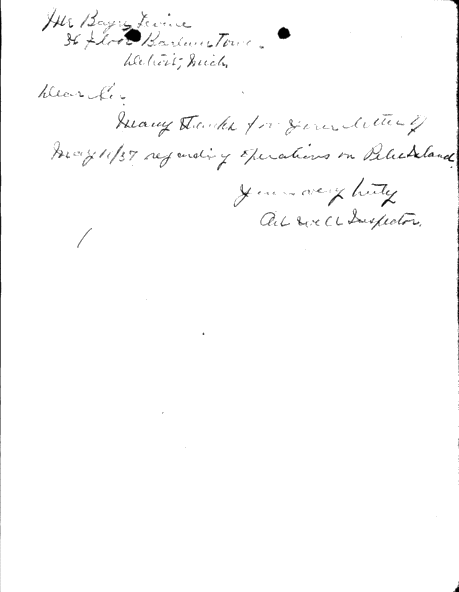 Mr Bayn Irvine
36 floor Barlum Tower.
Detroit, Mich.
Dear Sir.
Many thanks for your letter of
May 11/37 regarding operations on Pelee Island.
Yours very truly
Well Inspector.